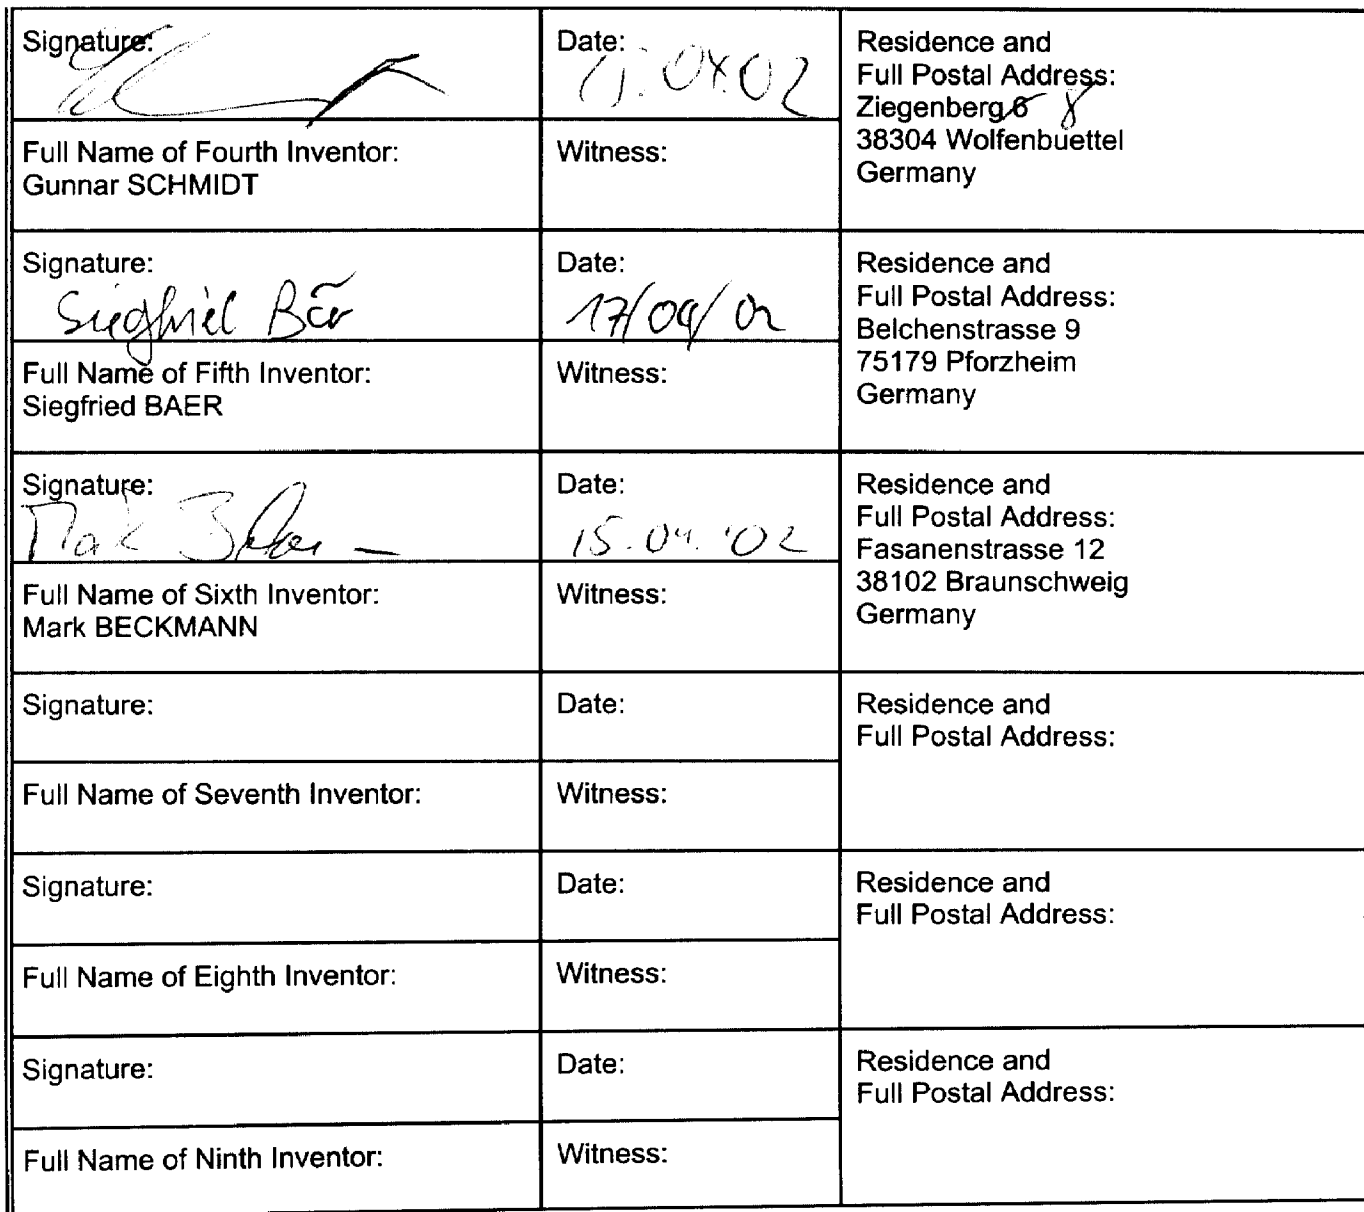 Signature:
Date:
Residence and
Full Postal Address:
Ziegenberg 6 8
38304 Wolfenbuettel
Germany
Full Name of Fourth Inventor:
Gunnar SCHMIDT
Witness:
Signature:
Siegfried Bär
Date:
17/04/02
Residence and
Full Postal Address:
Belchenstrasse 9
75179 Pforzheim
Germany
Full Name of Fifth Inventor:
Siegfried BAER
Witness:
Signature:
Mark
Date:
15.04.'02
Residence and
Full Postal Address:
Fasanenstrasse 12
38102 Braunschweig
Germany
Full Name of Sixth Inventor:
Mark BECKMANN
Witness:
Signature:
Date:
Residence and
Full Postal Address:
Full Name of Seventh Inventor:
Witness:
Signature:
Date:
Residence and
Full Postal Address:
Full Name of Eighth Inventor:
Witness:
Signature:
Date:
Residence and
Full Postal Address:
Full Name of Ninth Inventor:
Witness: